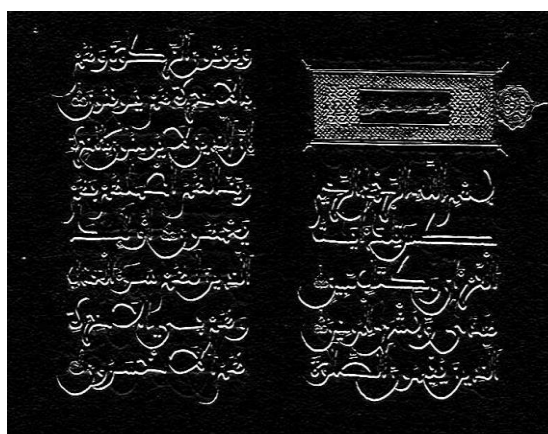 بسم الله الرحمن الرحيم
طس تلك ءايت
القرءان وكتب مبين
هدى وبشرى للمومنين
الذين يقيمون الصلوة
ويوتون الزكوة وهم
بالاخرة هم يوقنون
ان الذين لا يومنون بالاخرة
زينا لهم اعملهم فهم
يعمهون اوليك
الذين لهم سوء العذاب
وهم في الاخرة
هم الاخسرون